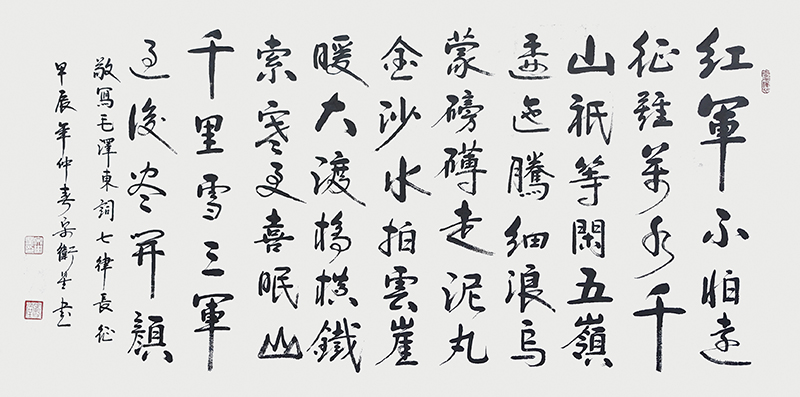 紅軍不怕遠
征難萬水千
山祇等閑五嶺
逶迤騰細浪烏
蒙磅礴走泥丸
金沙水拍雲崖
暖大渡橋橫鐵
索寒更喜眠山
千里雪三軍
過後盡開顏
敬寫毛澤東詞七律長征
甲辰年仲春衛星書